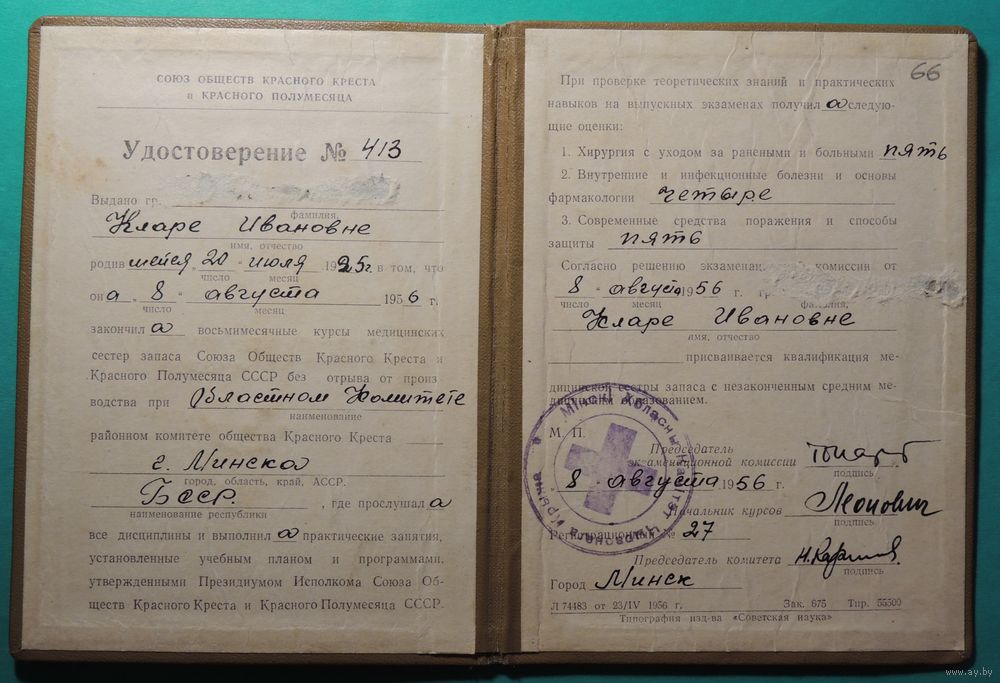 СОЮЗ ОБЩЕСТВ КРАСНОГО КРЕСТА
и КРАСНОГО ПОЛУМЕСЯЦА
Удостоверение № 413
Выдано гр.
фамилия
Кларе Ивановне
имя, отчество
родившейся „20" июля 1925 г. в том, что
число месяц
она „8" августа 1956 г.
число месяц
закончила восьмимесячные курсы медицинских
сестер запаса Союза Обществ Красного Креста и
Красного Полумесяца СССР без отрыва от произ
водства при Областном Комитете
наименование
районном комитете общества Красного Креста
г. Минска
город, область, край, АССР.
БССР. , где прослушала
наименование республики
все дисциплины и выполнила практические занятия,
установленные учебным планом и программами,
утвержденными Президиумом Исполкома Союза Об-
ществ Красного Креста и Красного Полумесяца СССР.
66
При проверке теоретических знаний и практических
навыков на выпускных экзаменах получила следую-
щие оценки:
1. Хирургия с уходом за ранеными и больными пять
2. Внутренние и инфекционные болезни и основы
фармакологии четыре
3. Современные средства поражения и способы
защиты пять
Согласно решению экзаменац. комиссии от
8 августа 1956 г. гр.
число месяц фамилия,
Кларе Ивановне
имя, отчество
присваивается квалификация ме-
дицинской сестры запаса с незаконченным средним ме-
дицинским образованием.
М. П.
Председатель
экзаменационной комиссии
подпись
„8" августа 1956 г.
Начальник курсов Леонович
подпись
Регистрационный № 27
Председатель комитета
подпись
Город Минск
Л 74483 от 23/IV 1956 г. Зак. 675 Тир. 55500
Типография изд-ва «Советская наука»
Мінскі Абласны Камітэт Чырвонага Крыжа
www.ay.by